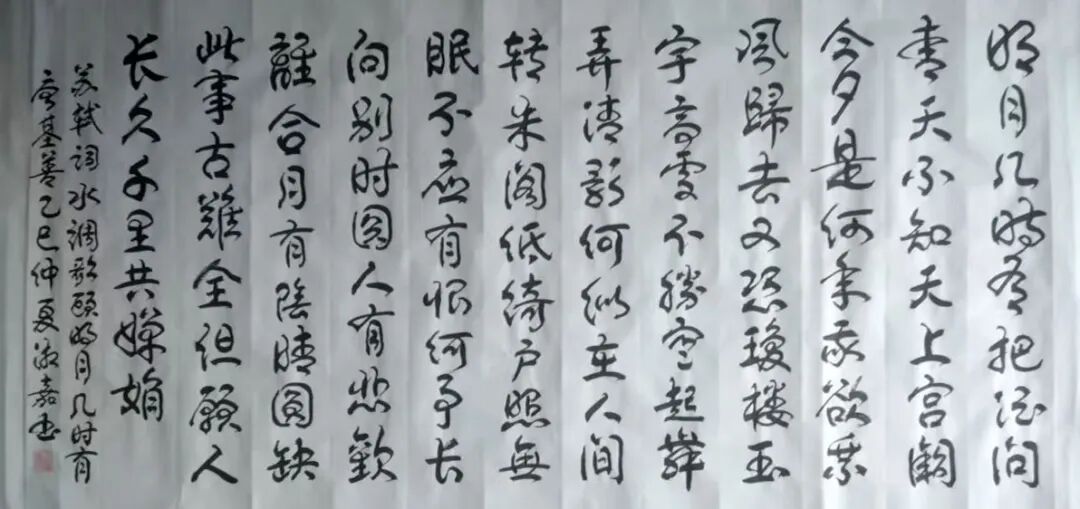 明月几時有把酒问
青天不知天上宫闕
今夕是何年我欲乘
风歸去又恐瓊楼玉
宇高處不勝寒起舞
弄清影何似在人间
转朱阁低绮户照無
眠不应有恨何事长
向别时圆人有悲歡
離合月有陰晴圆缺
此事古難全但願人
长久千里共婵娟
苏轼词水调歌頭明月几时有
基善乙巳仲夏嘉书